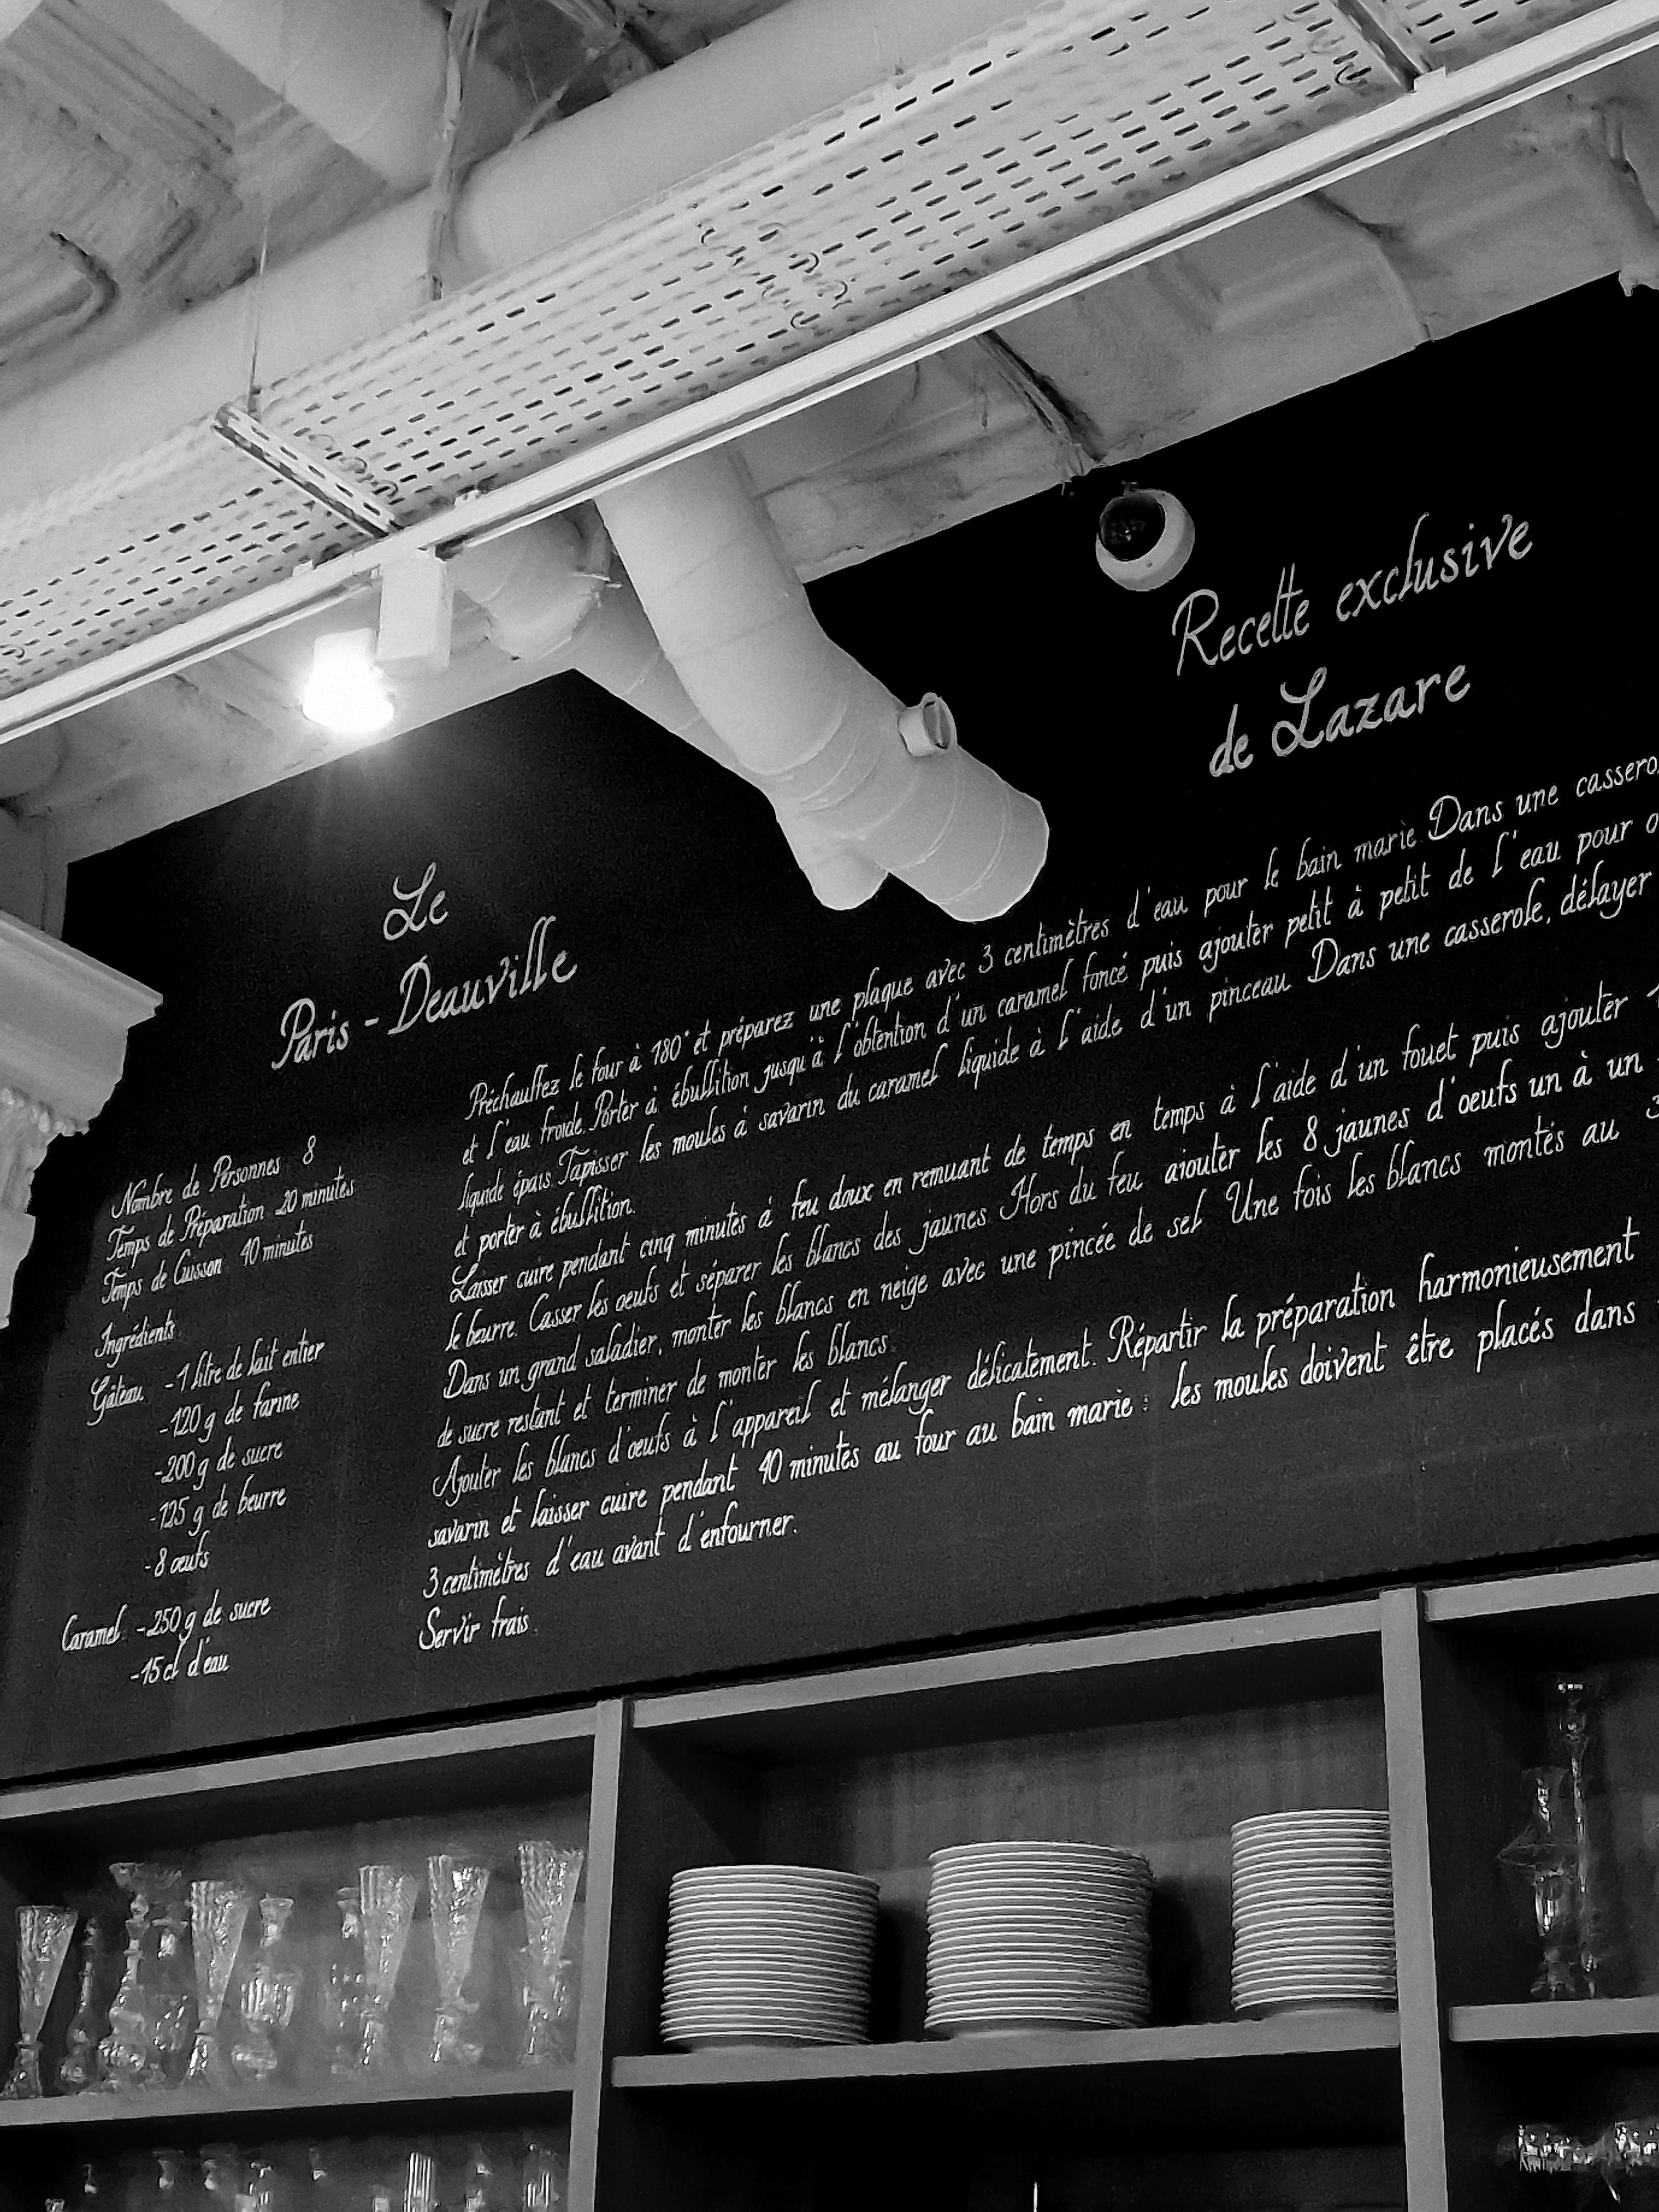 Recette exclusive
de Lazare
Le
Paris - Deauville
Nombre de Personnes 8
Temps de Préparation 20 minutes
Temps de Cuisson 40 minutes
Ingrédients
Gâteau -1 litre de lait entier
-120 g de farine
-200 g de sucre
-125 g de beurre
-8 œufs
Caramel -250 g de sucre
-15 cl d'eau
Préchauffez le four à 180° et préparez une plaque avec 3 centimètres d'eau pour le bain marie. Dans une
et l'eau froide. Porter à ébullition jusqu'à l'obtention d'un caramel foncé puis ajouter petit à petit de l'eau pour
liquide épais. Tapisser les moules à savarin du caramel liquide à l'aide d'un pinceau. Dans une casserole, délayer
et porter à ébullition.
Laisser cuire pendant cinq minutes à feu doux en remuant de temps en temps à l'aide d'un fouet puis ajouter
le beurre. Casser les oeufs et séparer les blancs des jaunes. Hors du feu ajouter les 8 jaunes d'oeufs un à un
Dans un grand saladier, monter les blancs en neige avec une pincée de sel. Une fois les blancs montés au
de sucre restant et terminer de monter les blancs.
Ajouter les blancs d'oeufs à l'appareil et mélanger délicatement. Répartir la préparation harmonieusement
savarin et laisser cuire pendant 40 minutes au four au bain marie : les moules doivent être placés dans
3 centimètres d'eau avant d'enfourner.
Servir frais.